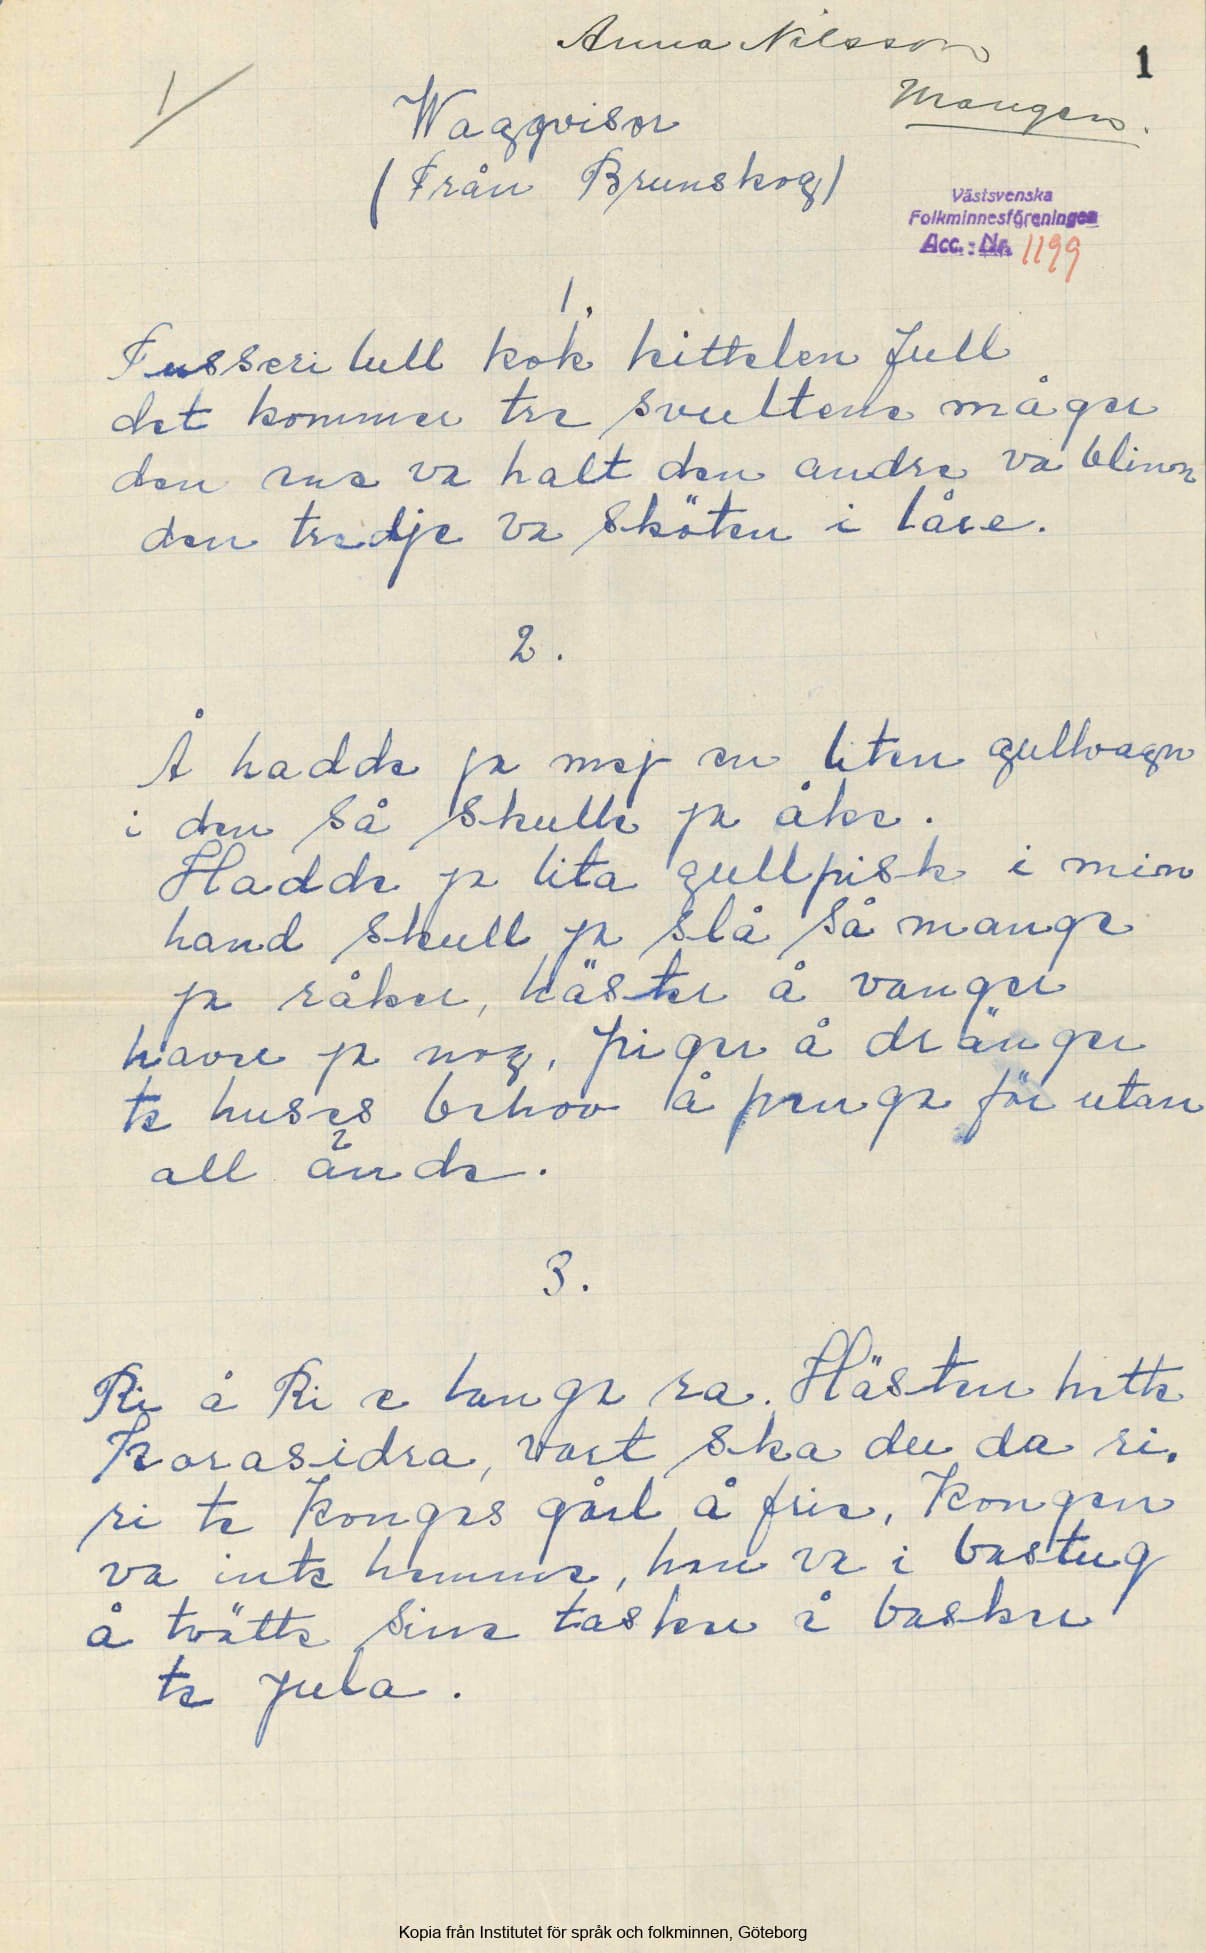 Anna Nilsson
1
Mangen.
1/
Waggvisor
(Från Brunskog)
Västsvenska
Folkminnesföreningen
Acc.: Nr. 1199
1.
Tusseri lull kok kittelen full
det kommer tre svultene måger
den ene va halt den andre va blinn
den tredje va sköten i låre.
2.
Å hadde ja mej en liten gullvagn
i den så skulle ja åke.
Hadde ja lita gullpisk i min
hand skull ja slå så mange
ja råker, häster å vanger
haver ja nog, piger å dränger
te huses behov å penga för utan
all ände.
3.
Ri å Ri e langa ra. Hästen hette
Korasidra, vort ska du da ri.
ri te Konges gård å frie, Kongen
va inte hemme, han va i bastug
å tvätte sine tasker å basker
te jula.
Kopia från Institutet för språk och folkminnen, Göteborg